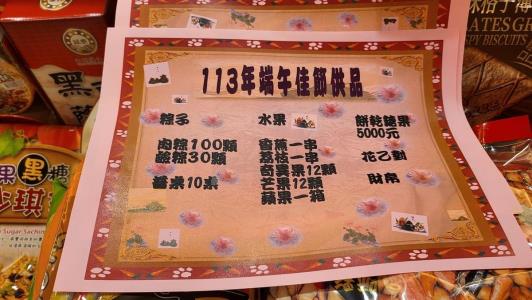 113年端午佳節供品
粽子
肉粽100顆
鹼粽30顆
水果
香蕉一串
荔枝一串
奇異果12顆
芒果12顆
蘋果一箱
餅乾糖果
5000元
花乙對
財帛
黑
果黑糖
沙琪
Sugar Sachi
ATES GR
PY BISCUITS